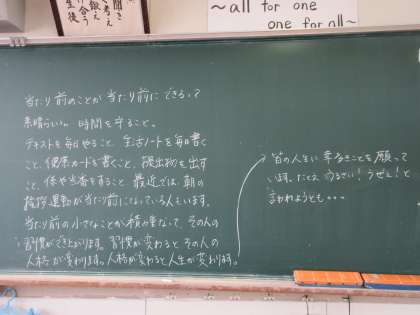 聞き
考え
鍛え
合う
生徒
〜all for one
one for all〜
当たり前のことが当たり前にできる。?
素晴らしい。時間を守ること。
テキストを毎日やること、生活ノートを毎日書く
こと、健康カードを書くこと、提出物を出す
こと、係や当番をすること、最近では、朝の
挨拶運動が当たり前になっている人もいます。
当たり前の小さなことが積み重なって、その人の
習慣ができ上がります。習慣が変わるとその人の
人格が変わります。人格が変わると人生が変わります。
皆の人生に幸多きことを願って
います。たとえ、うるせい!うぜぇ!と
言われようとも・・・